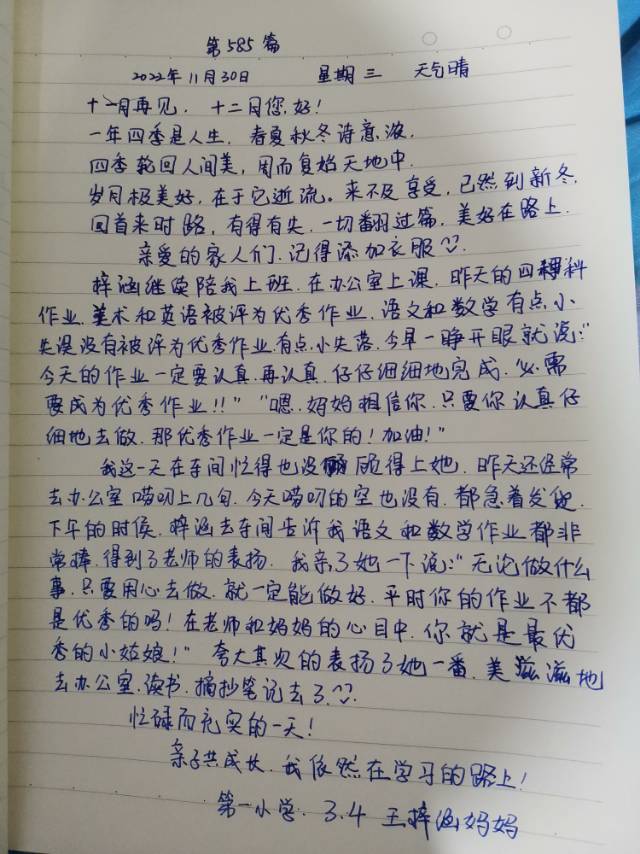 第585篇
2022年11月30日 星期三 天气晴
十一月再见，十二月您好！
一年四季是人生，春夏秋冬诗意浓，
四季轮回人间美，周而复始天地中。
岁月极美好，在于它逝流。来不及享受，已然到新冬，
回首来时路，有得有失，一切翻过篇，美好在路上。
亲爱的家人们，记得添加衣服
梓涵继续陪我上班，在办公室上课，昨天的四科
作业，美术和英语被评为优秀作业，语文和数学有点小
失误没有被评为优秀作业，有点小失落，今早一睁开眼就说：“
今天的作业一定要认真，再认真，仔仔细细地完成，必需
要成为优秀作业！！”“嗯，妈妈相信你，只要你认真仔
细地去做，那优秀作业一定是你的！加油！”
我这一天在车间忙得也没顾得上她，昨天还经常
去办公室唠叨上几句，今天唠叨的空也没有，都急着发货，
下午的时候，梓涵去车间告诉我语文和数学作业都非
常棒，得到了老师的表扬，我亲了她一下说：“无论做什么
事，只要用心去做，就一定能做好，平时你的作业不都
是优秀的吗！在老师和妈妈的心目中，你就是最优
秀的小姑娘！”夸大其次的表扬了她一番，美滋滋地
去办公室，读书，摘抄笔记去了
忙碌而充实的一天！
亲子共成长，我依然在学习的路上！
第一小学，3.4 王梓涵妈妈